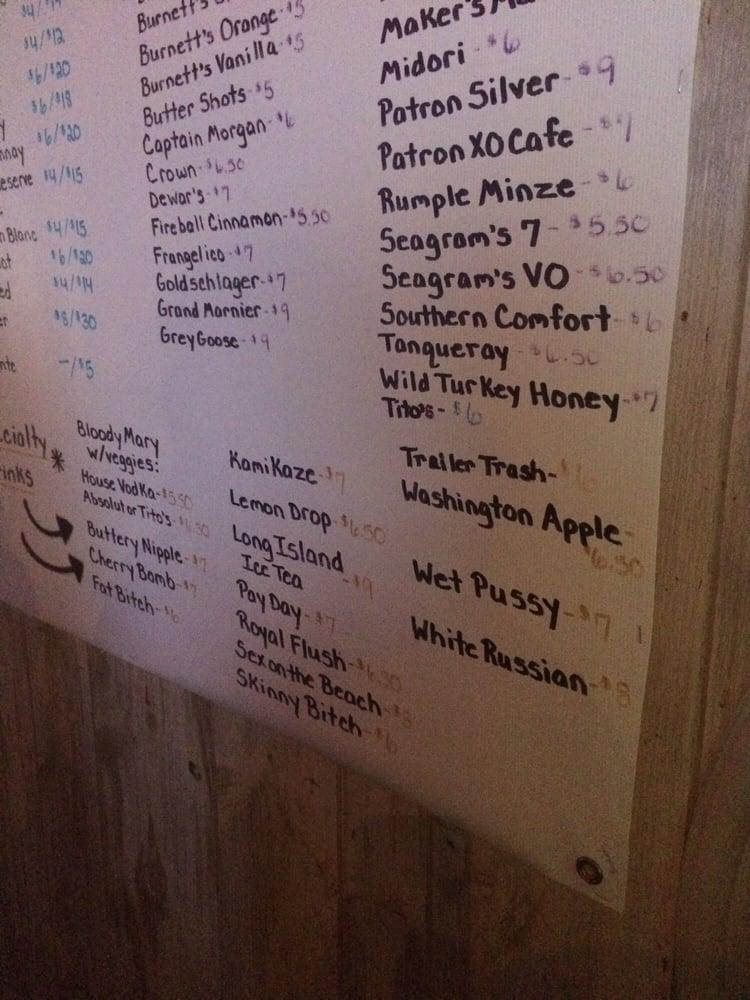 $4/$12
$6/$20
$6/$18
$6/$20
eserve $4/$15
n Blanc $4/$15
$6/$20
$4/$14
$8/$30
-/$5
Burnett's
Burnett's Orange-$5
Burnett's Vanilla-$5
Butter Shots-$5
Captain Morgan-$6
Crown-$6.50
Dewar's-$7
Fireball Cinnamon-$5.50
Frangelico-$7
Goldschlager-$7
Grand Marnier-$9
Grey Goose-$9
Maker's Ma
Midori-$6
Patron Silver-$9
Patron XO Cafe-
Rumple Minze-$6
Seagram's 7-$5.50
Seagram's VO-$6.50
Southern Comfort-$6
Tanqueray-$6.50
Wild Turkey Honey-$7
Tito's-$6
cialty
inks
*
Bloody Mary
w/veggies:
House Vodka-$5.50
Absolut or Tito's-$6.50
Buttery Nipple-$7
Cherry Bomb-$7
Fat Bitch-$6
Kamikaze-$7
Lemon Drop-$6.50
Long Island
Ice Tea-$9
Pay Day-$7
Royal Flush-$6.50
Sex on the Beach-$8
Skinny Bitch-$6
Trailer Trash-$6
Washington Apple-
$6.50
Wet Pussy-$7
White Russian-$8